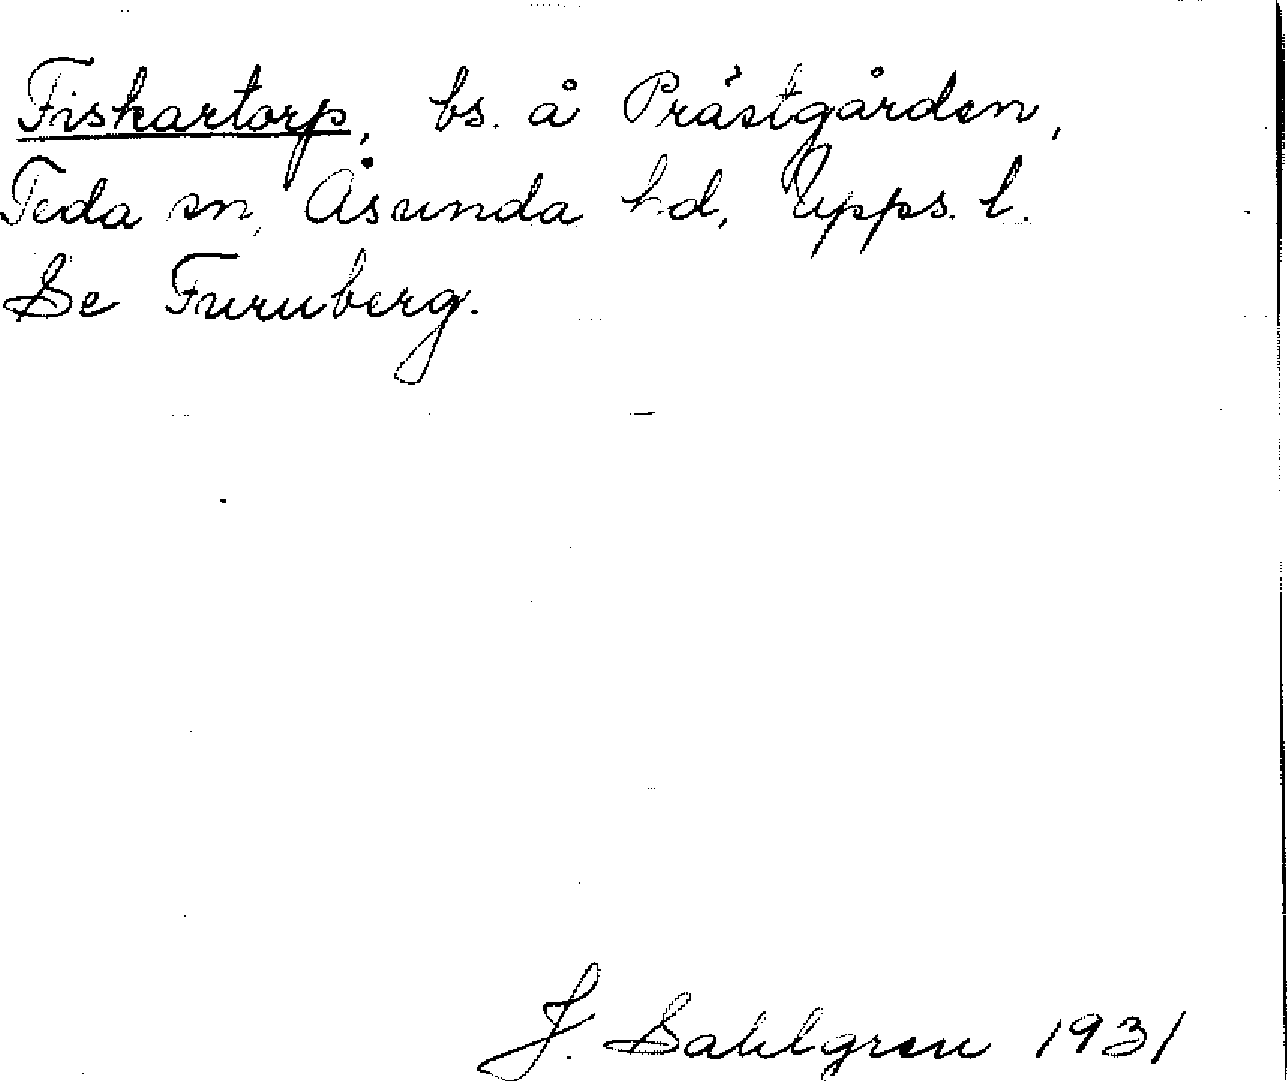 Fiskartorp, bs. å Prästgården,
Teda sn, Åsunda hd, Upps. l.
Se Furuberg.
J. Sahlgren 1931